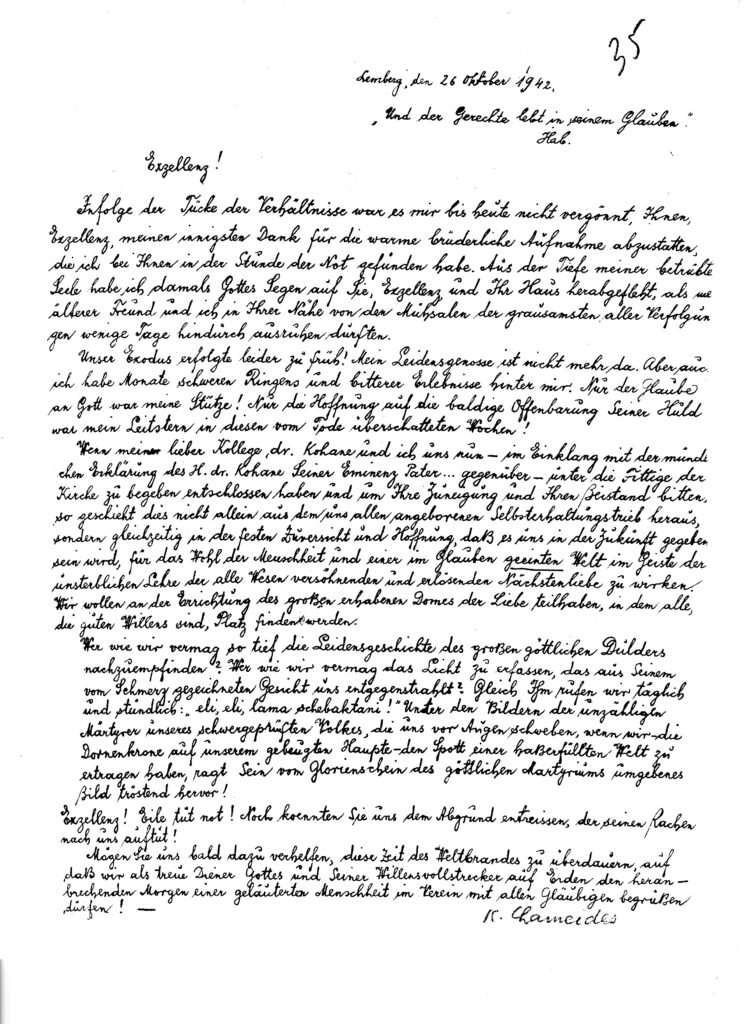 35
Lemberg, den 26 Oktober 1942.
„Und der Gerechte lebt in seinem Glauben".
Hab.
Exzellenz!
Infolge der Tücke der Verhältnisse war es mir bis heute nicht vergönnt, Ihnen,
Exzellenz, meinen innigsten Dank für die warme brüderliche Aufnahme abzustatten,
die ich bei Ihnen in der Stunde der Not gefunden habe. Aus der Tiefe meiner betrübte
Seele habe ich damals Gottes Segen auf Sie, Exzellenz und Ihr Haus herabgefleht, als me
älterer Freund und ich in Ihrer Nähe von den Mühsalen der grausamsten aller Verfolgun
gen wenige Tage hindurch ausruhen durften.
Unser Exodus erfolgte leider zu früh! Mein Leidensgenosse ist nicht mehr da. Aber auc
ich habe Monate schweren Ringens und bitterer Erlebnisse hinter mir. Nur der Glaube
an Gott war meine Stütze! Nur die Hoffnung auf die baldige Offenbarung Seiner Huld
war mein Leitstern in diesen vom Tode überschatteten Wochen!
Wenn mein lieber Kollege, dr. Kohane und ich uns nun – im Einklang mit der münd
chen Erklärung des H. dr. Kohane Seiner Eminenz Pater... gegenüber – unter die Fittige der
Kirche zu begeben entschlossen haben und um Ihre Zuneigung und Ihren Beistand bitten,
so geschieht dies nicht allein aus dem uns allen angeborenen Selbsterhaltungstrieb heraus,
sondern gleichzeitig in der festen Zuversicht und Hoffnung, daß es uns in der Zukunft gegeben
sein wird, für das Wohl der Menschheit und einer im Glauben geeinten Welt im Geiste der
unsterblichen Lehre der alle Wesen versöhnenden und erlösenden Nächstenliebe zu wirken.
Wir wollen an der Errichtung des großen erhabenen Domes der Liebe teilhaben, in dem alle,
die guten Willens sind, Platz finden werden.
Wer wie wir vermag so tief die Leidensgeschichte des großen göttlichen Dulders
nachzuempfinden? Wer wie wir vermag das Licht zu erfassen, das aus Seinem
vom Schmerz gezeichneten Gesicht uns entgegenstrahlt? Gleich Ihm rufen wir täglich
und stündlich: „eli, eli, lama schebaktani!" Unter den Bildern der unzähligen
Märtyrer unseres schwergeprüften Volkes, die uns vor Augen schweben, wenn wir – die
Dornenkrone auf unserem gebeugten Haupte – den Spott einer haßerfüllten Welt zu
ertragen haben, ragt Sein vom Glorienschein des göttlichen Martyriums umgebenes
Bild tröstend hervor!
Exzellenz! Eile tut not! Noch koennten Sie uns dem Abgrund entreissen, der seinen Rachen
nach uns auftut!
Mögen Sie uns bald dazu verhelfen, diese Zeit des Weltbrandes zu überdauern, auf
daß wir als treue Diener Gottes und Seiner Willensvollstrecker auf Erden den heran –
brechenden Morgen einer geläuterten Menschheit im Verein mit allen Gläubigen begrüßen
dürfen! —
K. Chameides